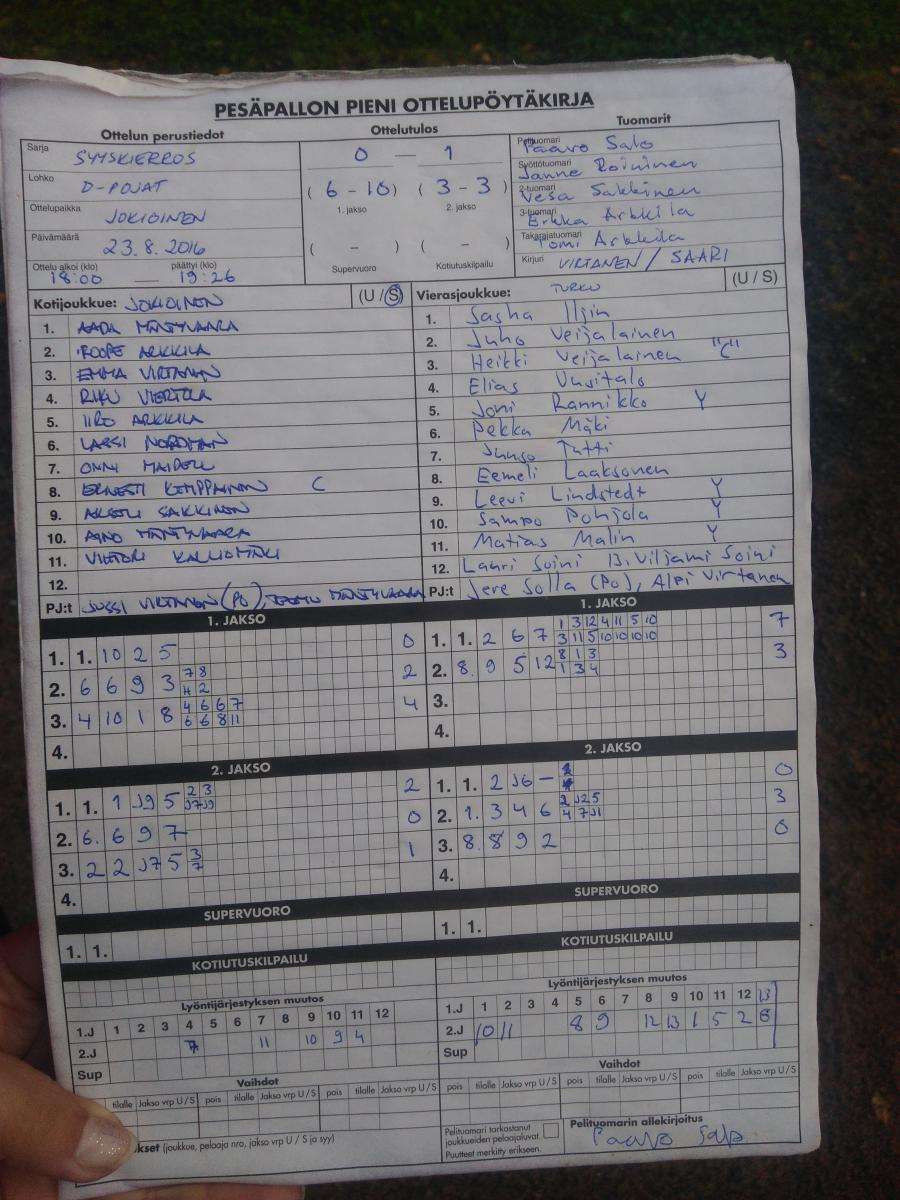 PESÄPALLON PIENI OTTELUPÖYTÄKIRJA
Ottelun perustiedot
Sarja SYYSKIERROS
Lohko D-POJAT
Ottelupaikka JOKIOINEN
Päivämäärä 23.8.2016
Ottelu alkoi (klo) päättyi (klo)
18:00 — 19:26
Ottelutulos
0 — 1
(6-10) (3-3)
1. jakso 2. jakso
( - ) ( - )
Supervuoro Kotiutuskilpailu
Tuomarit
Pelituomari Paavo Salo
Syöttötuomari Janne Roininen
2-tuomari Vesa Sakkinen
3-tuomari Erkka Arkkila
Takarajatuomari Tomi Arkkila
Kirjuri VIRTANEN / SAARI
Kotijoukkue: JOKIOINEN (U / S)
1. AADA MÄNTYVAARA
2. ROOPE ARKKILA
3. EMMA VIRTANEN
4. RIKU VIERTOLA
5. IIRO ARKKILA
6. LASSI NORDMAN
7. ONNI MAIDELL
8. ERNESTI KEMPPAINEN C
9. AKSELI SAKKINEN
10. AINO MÄNTYVAARA
11. VIETORI KALLIOMÄKI
12.
PJ:t JUSSI VIRTANEN (PO), TEEMU MÄNTYVAARA
Vierasjoukkue: TURKU (U / S)
1. Sasha Iljin
2. Juho Veijalainen
3. Heikki Veijalainen "C"
4. Elias Uusitalo
5. Joni Rannikko Y
6. Pekka Mäki
7. Juuso Tutti
8. Eemeli Laaksonen
9. Leevi Lindstedt Y
10. Sampo Pohjola Y
11. Matias Malin Y
12. Lauri Soini 13. Viljami Soini
PJ:t Jere Solla (PO), Alpi Virtanen
1. JAKSO
1. 1. 10 2 5 0
2. 6 6 9 3 7 8 2
4 2
3. 4 10 1 8 4 6 6 7 4
6 6 8 11
4.
1. JAKSO
1. 1. 2 6 7 1 3 12 4 11 5 10 7
3 11 5 10 10 10 10
2. 8. 9 5 12 8 1 3 3
1 3 4
3.
4.
2. JAKSO
1. 1. 1 J9 5 2 3 2
J7 J9
2. 6. 6 9 7 0
3. 2 2 J7 5 3 1
7
4.
2. JAKSO
1. 1. 2 J6 — 0
2. 1. 3 4 6 2 J2 5 3
4 7 J1
3. 8. 8 9 2 0
4.
SUPERVUORO
1. 1.
SUPERVUORO
1. 1.
KOTIUTUSKILPAILU
KOTIUTUSKILPAILU
Lyöntijärjestyksen muutos
1.J 1 2 3 4 5 6 7 8 9 10 11 12
2.J 7 11 10 9 4
Sup
Lyöntijärjestyksen muutos
1.J 1 2 3 4 5 6 7 8 9 10 11 12 13
2.J 10 11 8 9 12 13 1 5 2 6
Sup
Vaihdot
tilalle Jakso vrp U / S pois tilalle Jakso vrp U / S pois tilalle Jakso vrp U / S
Vaihdot
pois tilalle Jakso vrp U / S pois tilalle Jakso vrp U / S pois tilalle Jakso vrp U / S
(joukkue, pelaaja nro, jakso vrp U / S ja syy)
Pelituomari tarkastanut
joukkueiden pelaajaluvat.
Puutteet merkitty erikseen.
Pelituomarin allekirjoitus
Paavo Salo